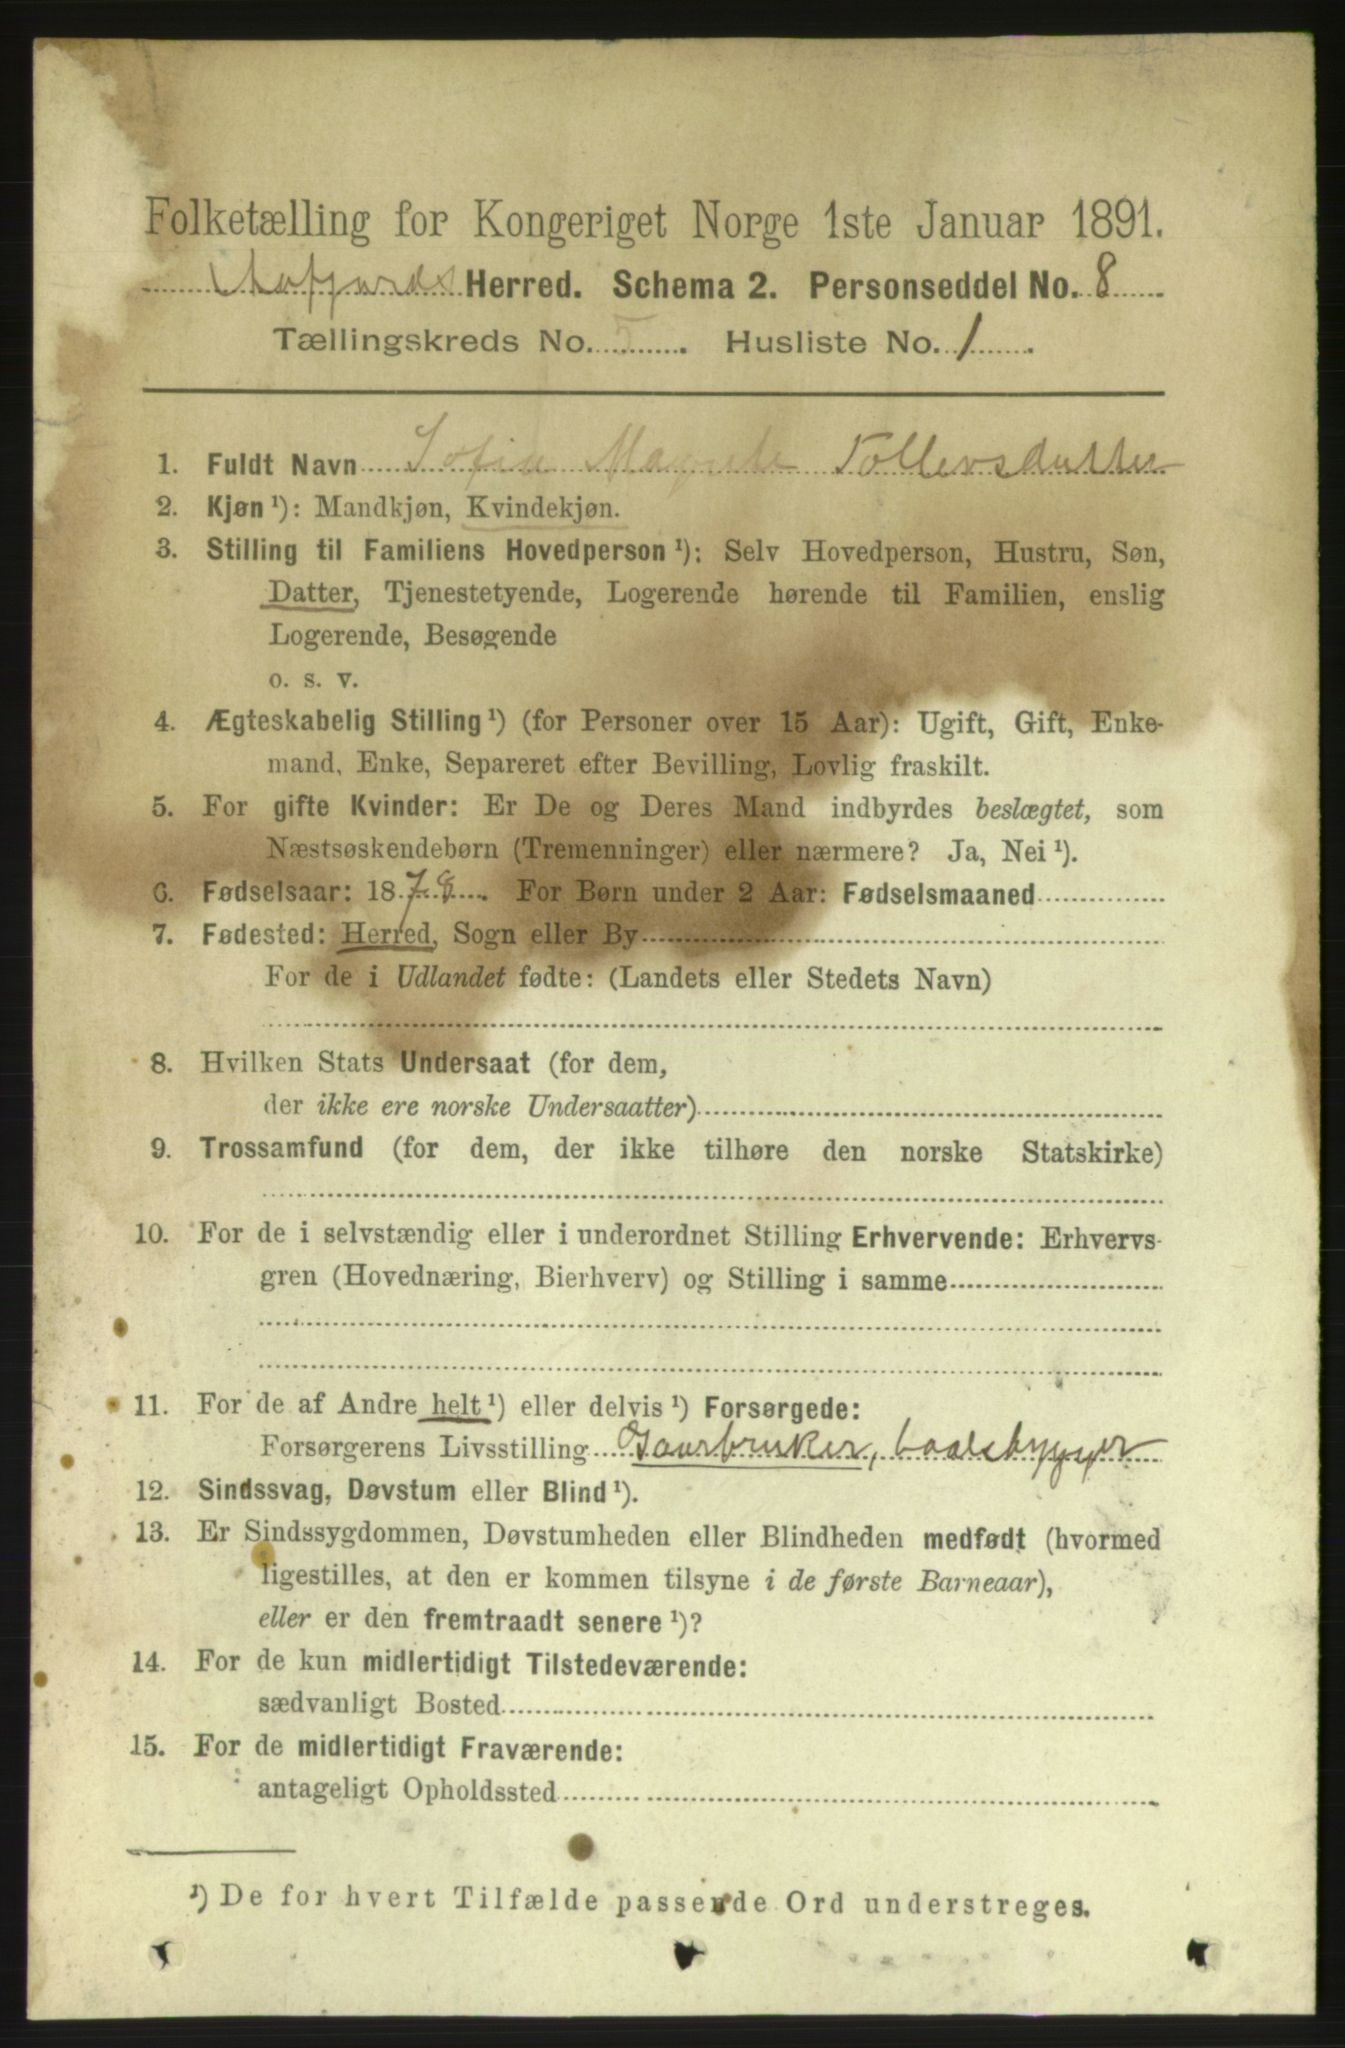 Folketælling for Kongeriget Norge 1ste Januar 1891.
Herred. Schema 2. Personseddel No. 8
Tællingskreds No. 5. Husliste No. 1.
1. Fuldt Navn Sofie Magrete Tollevsdatter
2. Kjøn ¹): Mandkjøn, Kvindekjøn.
3. Stilling til Familiens Hovedperson ¹): Selv Hovedperson, Hustru, Søn,
Datter, Tjenestetyende, Logerende hørende til Familien, enslig
Logerende, Besøgende
o. s. v.
4. Ægteskabelig Stilling ¹) (for Personer over 15 Aar): Ugift, Gift, Enke-
mand, Enke, Separeret efter Bevilling, Lovlig fraskilt.
5. For gifte Kvinder: Er De og Deres Mand indbyrdes beslægtet, som
Næstsøskendebørn (Tremenninger) eller nærmere? Ja, Nei ¹).
6. Fødselsaar: 1878. For Børn under 2 Aar: Fødselsmaaned
7. Fødested: Herred, Sogn eller By
For de i Udlandet fødte: (Landets eller Stedets Navn)
8. Hvilken Stats Undersaat (for dem,
der ikke ere norske Undersaatter)
9. Trossamfund (for dem, der ikke tilhøre den norske Statskirke)
10. For de i selvstændig eller i underordnet Stilling Erhvervende: Erhvervs-
gren (Hovednæring, Bierhverv) og Stilling i samme
11. For de af Andre helt ¹) eller delvis ¹) Forsørgede:
Forsørgerens Livsstilling Gaarbruker, baadsbygger
12. Sindssvag, Døvstum eller Blind ¹).
13. Er Sindssygdommen, Døvstumheden eller Blindheden medfødt (hvormed
ligestilles, at den er kommen tilsyne i de første Barneaar),
eller er den fremtraadt senere ¹)?
14. For de kun midlertidigt Tilstedeværende:
sædvanligt Bosted
15. For de midlertidigt Fraværende:
antageligt Opholdssted
¹) De for hvert Tilfælde passende Ord understreges.